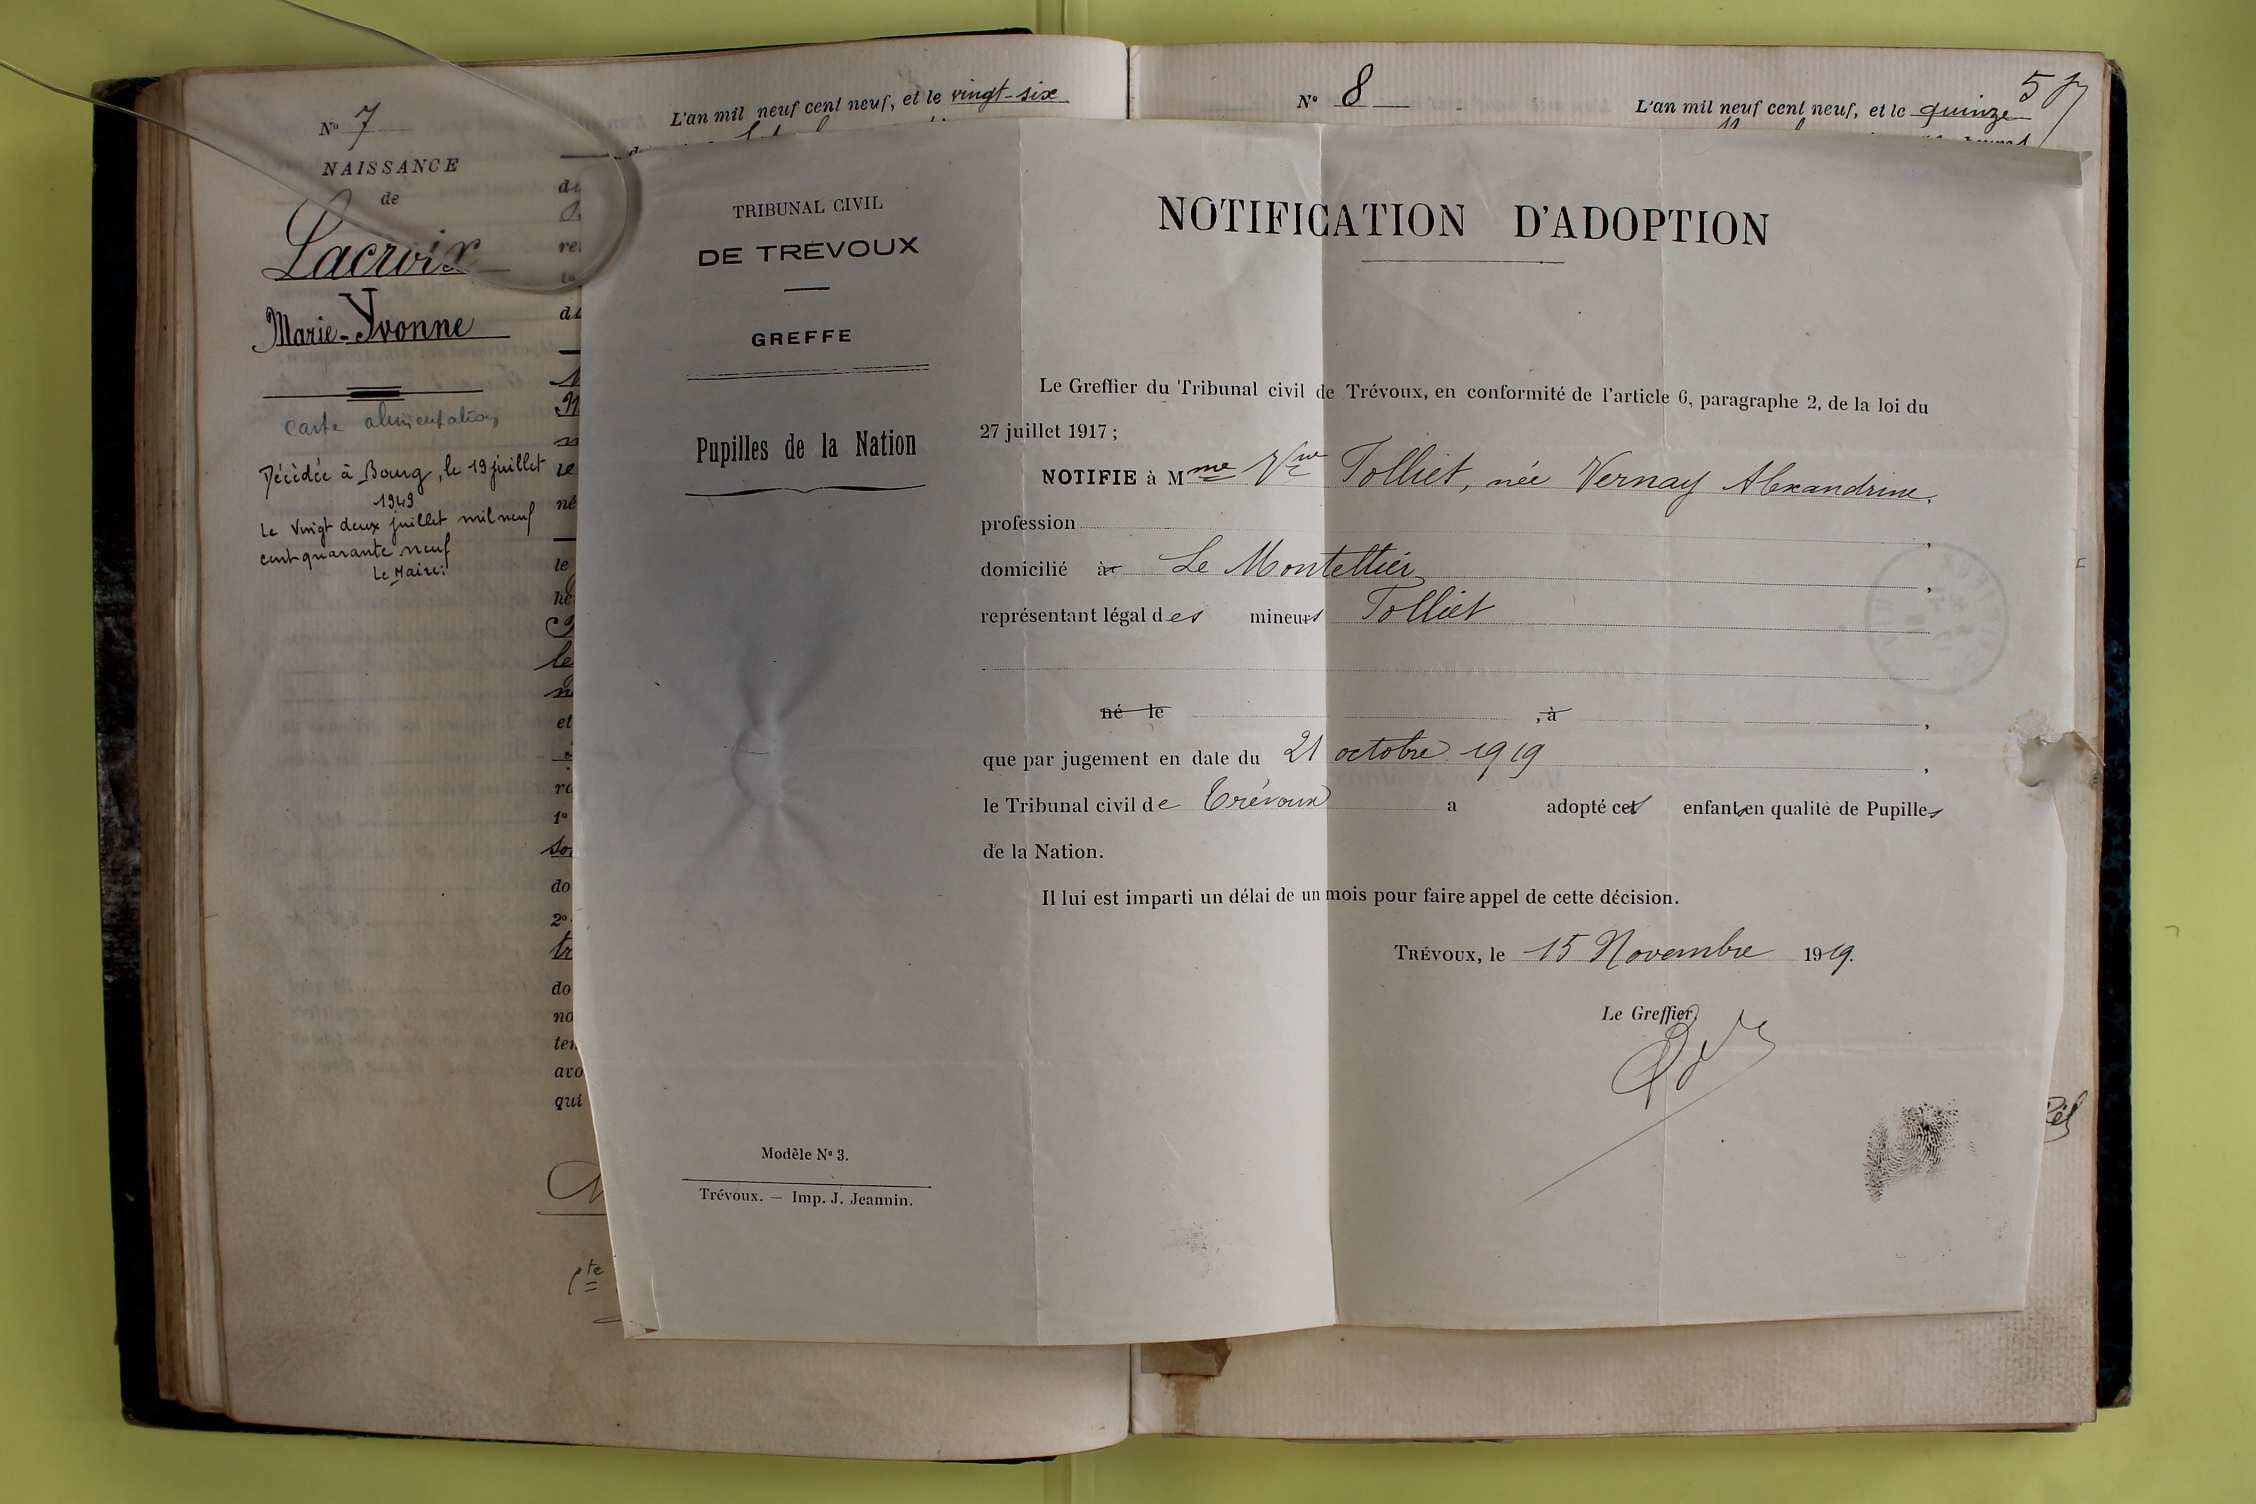 N° 7
NAISSANCE
de
Lacroix
Marie-Yvonne
Carte alimentation
Décédée à Bourg, le 19 juillet
1949
Le Vingt deux juillet mil neuf
cent quarante neuf
Le Maire:
L'an mil neuf cent neuf, et le vingt-six
le
et
1°
do
2°
do
no
avo
qui
N° 8
L'an mil neuf cent neuf, et le quinze
TRIBUNAL CIVIL
DE TRÉVOUX
GREFFE
Pupilles de la Nation
Modèle N° 3.
Trévoux. — Imp. J. Jeannin.
NOTIFICATION D'ADOPTION
Le Greffier du Tribunal civil de Trévoux, en conformité de l'article 6, paragraphe 2, de la loi du
27 juillet 1917 ;
NOTIFIE à Mme Vve Tolliet, née Vernay Alexandrine,
profession ,
domicilié à Le Montellier ,
représentant légal des mineurs Tolliet
né le , à ,
que par jugement en date du 21 octobre 1919 ,
le Tribunal civil de Trévoux a adopté ces enfants en qualité de Pupilles
de la Nation.
Il lui est imparti un délai de un mois pour faire appel de cette décision.
TRÉVOUX, le 15 Novembre 1919.
Le Greffier,